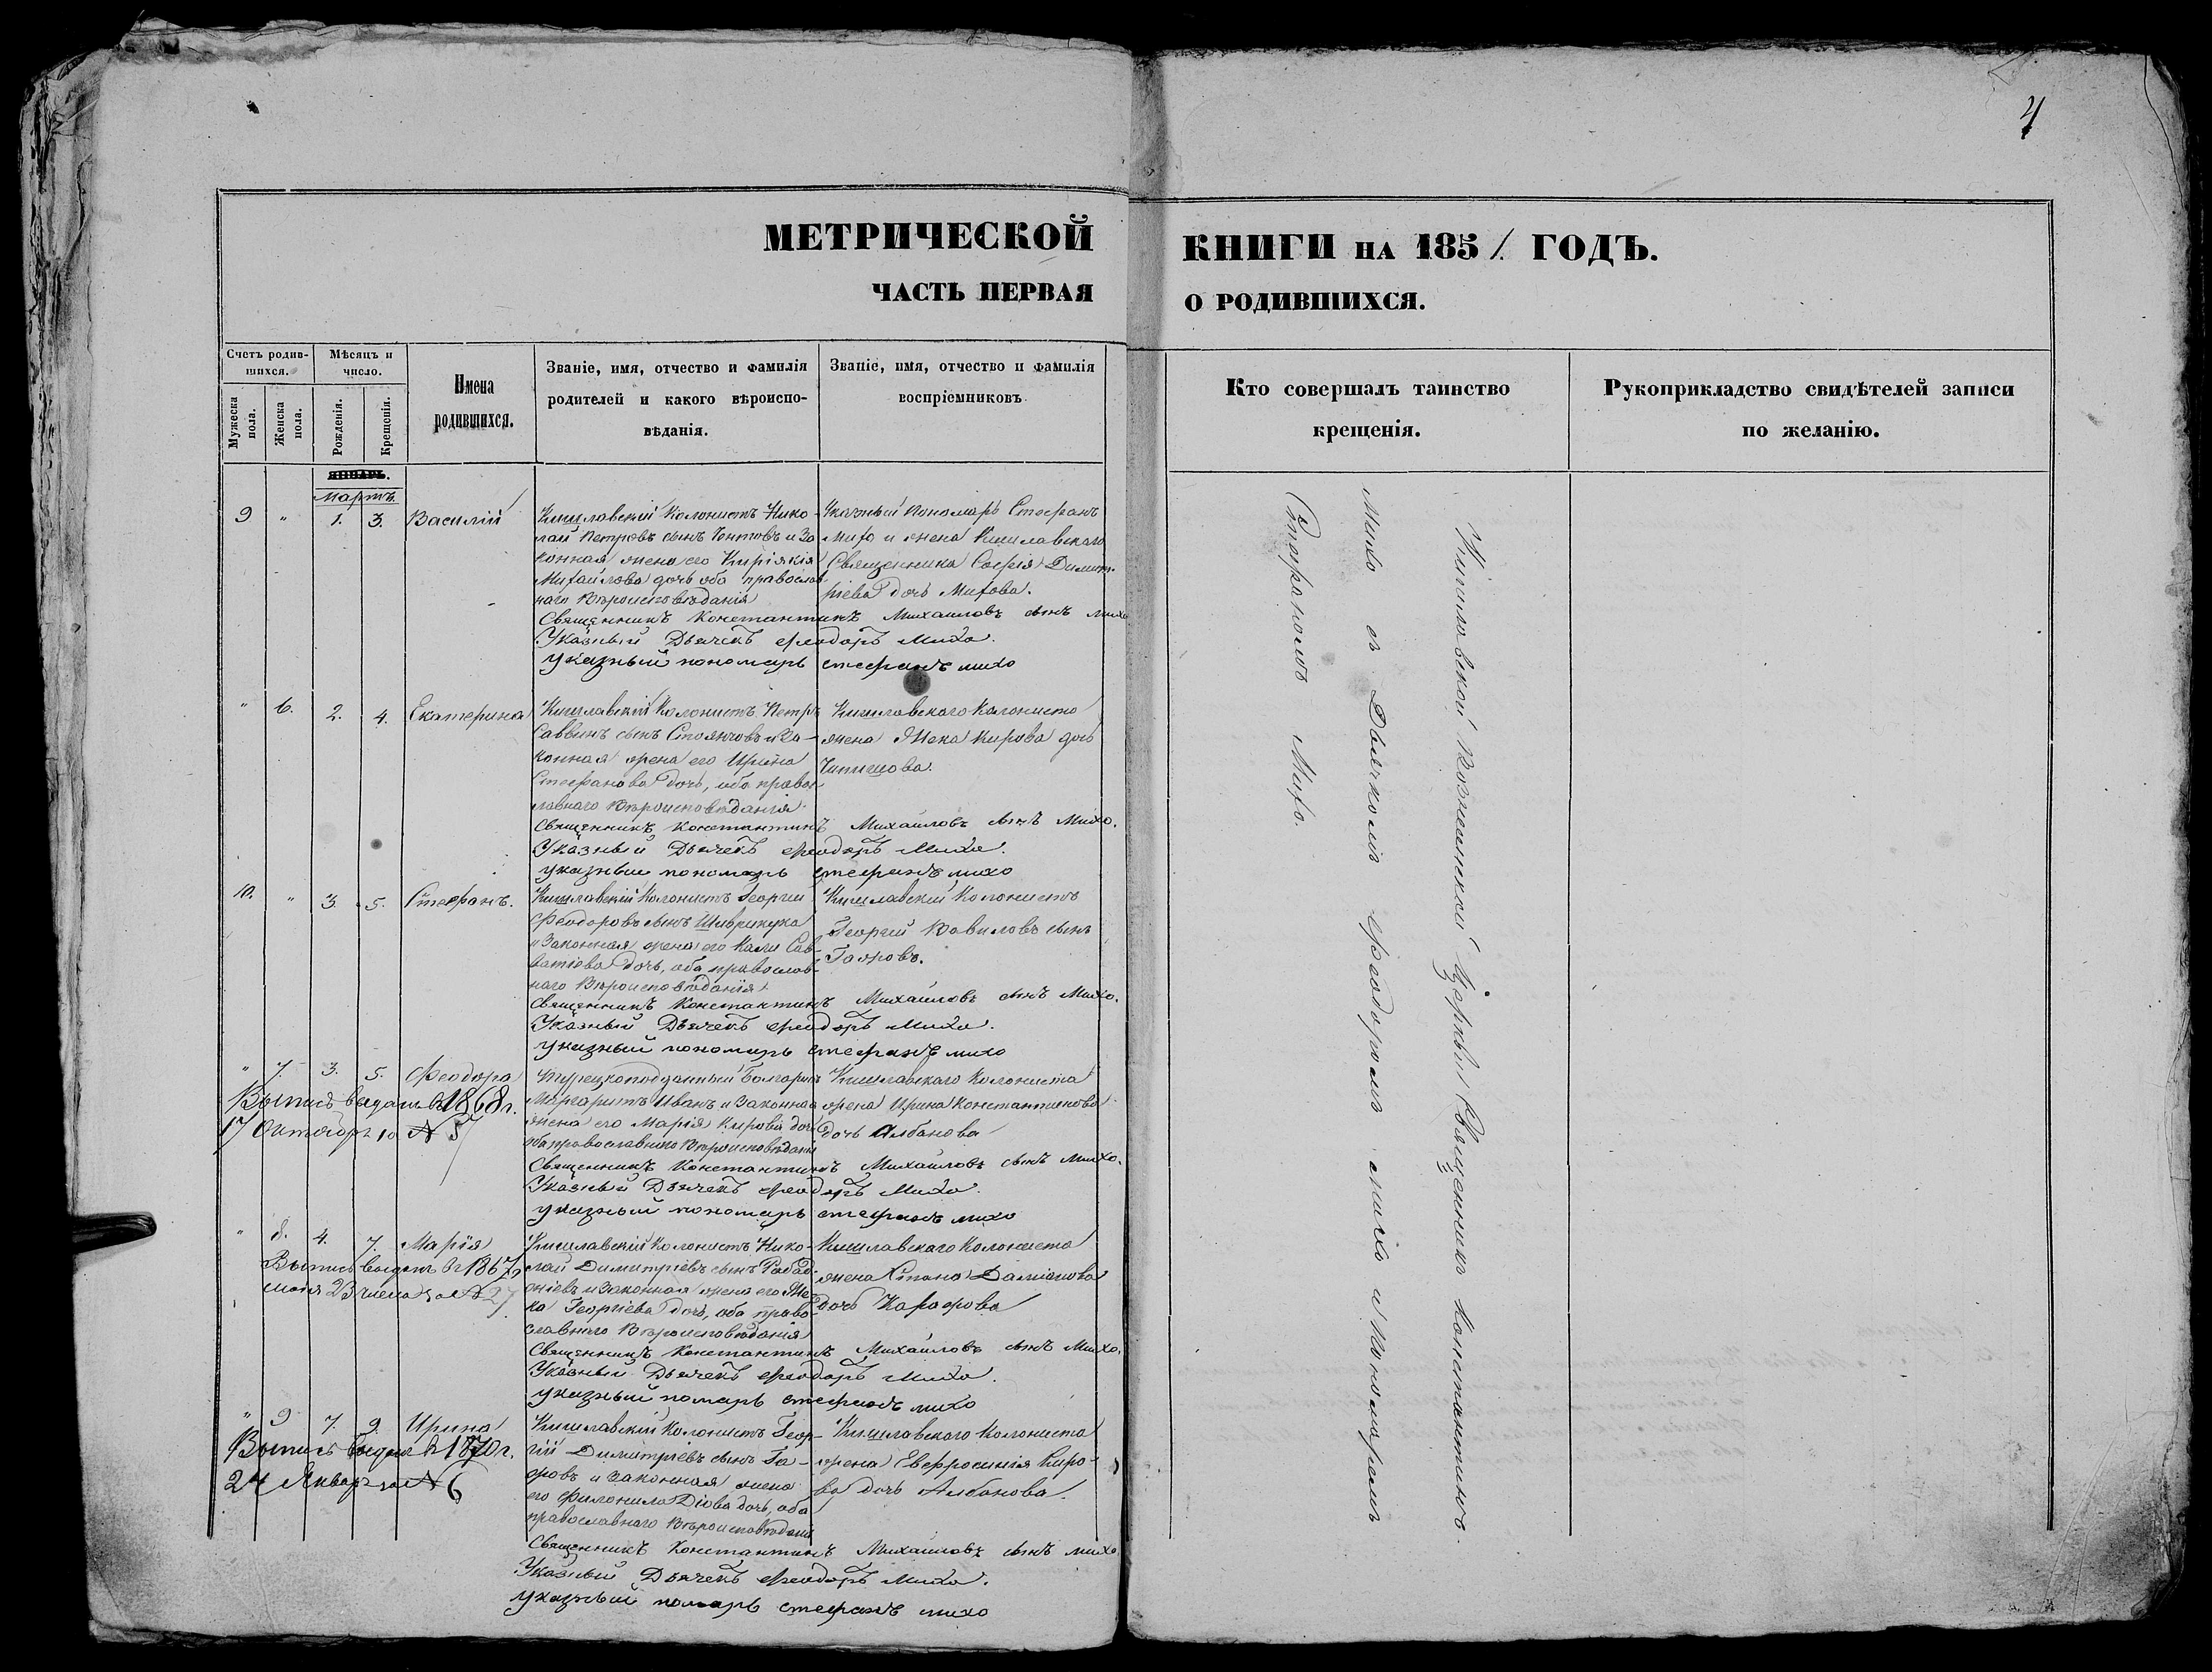 4
МЕТРИЧЕСКОЙ
ЧАСТЬ ПЕРВАЯ
КНИГИ НА 1851. ГОДЪ.
О РОДИВШИХСЯ.
Счетъ родив-
шихся.
Мужеска пола.
Женска пола.
Мѣсяцъ и
число.
Рожденія.
Крещенія.
Имена
родившихся.
Званіе, имя, отчество и фамилія
родителей и какого вѣроиспо-
вѣданія.
Званіе, имя, отчество и фамилія
воспріемниковъ
Кто совершалъ таинство
крещенія.
Рукоприкладство свидѣтелей записи
по желанію.
январь.
Мартъ.
9 " 1. 3. Василій
Кишлавскій Колонистъ Нико-
лай Петровъ сынъ и За
конная жена его Киріякія
Михайлова дочь оба православ-
наго Вѣроисповѣданія
Указный Пономарь Стефанъ
Михо и жена Кишлавскаго
Священника Софія Димит-
ріева дочь Михова.
Священникъ Константинъ Михаиловъ сынъ Михо
Указный Дьячекъ Феодоръ Михо.
указный пономарь стефанъ михо
" 6. 2. 4. Екатерина
Кишлавскій Колонистъ Петръ
Саввинъ сынъ Стоянговъ и За-
конная жена его Ирина
Стефанова дочь, оба правос
лавнаго Вѣроисповѣданія
Кишлавскаго Колониста
жена Жека Кирова дочь
Чипишова.
Священникъ Константинъ Михаиловъ сынъ Михо.
Указный Дьячекъ Феодоръ Михо.
указный пономарь стефанъ михо
10. " 3. 5. Стефанъ.
Кишлавскій Колонистъ Георгій
Феодоровъ сынъ
и Законная жена его Кали Сав-
ватіева дочь, оба православ-
наго Вѣроисповѣданія
Кишлавскій Колонистъ
Георгій Вавиловъ сынъ
Гаяровъ.
Священникъ Константинъ Михаиловъ сынъ Михо.
Указный Дьячекъ Феодоръ Михо.
указный пономарь стефанъ михо
" 7. 3. 5. Феодора
Выпись выдана въ 1868 г.
17 Октября No 57
Турецкоподданный Болгаринъ
Маргаритъ Иванъ и Законная
жена его Марія Кирова дочь
оба православнаго Вѣроисповѣданія
Кишлавскаго Колониста
жена Ирина Константинова
дочь Албанова
Священникъ Константинъ Михаиловъ сынъ Михо.
Указный Дьячекъ Феодоръ Михо.
указный пономарь стефанъ михо
" 8. 4. 7. Марія
Выпись выдана въ 1867 г.
мая 23 числа за No 27
Кишлавскій Колонистъ Нико-
лай Димитріевъ сынъ Рабад-
жіевъ и Законная жена его Же-
ка Георгіева дочь, оба право-
славнаго Вѣроисповѣданія
Кишлавскаго Колониста
жена Стана Даміанова
дочь
Священникъ Константинъ Михаиловъ сынъ Михо.
Указный Дьячекъ Феодоръ Михо.
указный помарь стефанъ михо
" 9 7. 9. Ирина
Выпись выдана въ 1870 г.
24 Января No 6
Кишлавскій Колонистъ Геор-
гій Димитріевъ сынъ Га-
яровъ и Законная жена
его Филонила Діова дочь, оба
православнаго Вѣроисповѣданія
Кишлавскаго Колониста
жена Евфросинія Киро-
ва дочь Албанова.
Священникъ Константинъ Михаиловъ сынъ михо
Указный Дьячекъ Феодоръ Михо.
указный помарь стефанъ михо
Кишлавской Церкви Священникъ Константинъ
Михо съ Дьячкомъ Феодоромъ михо и Пономаремъ
Стефаномъ Михо.